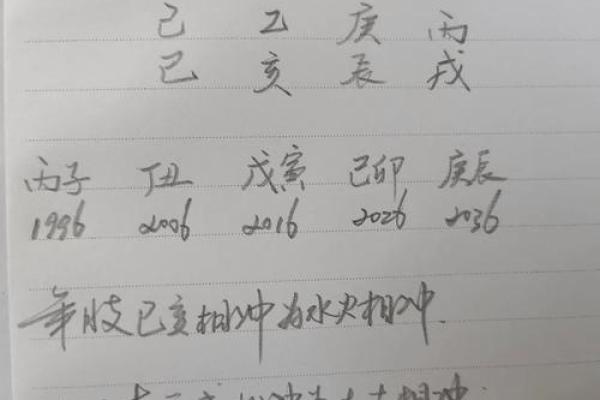 己 乙 庚 丙
巳 亥 辰 戌
丙子 丁丑 戊寅 己卯 庚辰
1996 2006 2016 2026 2036
年肢巳亥相冲为水火相冲.
相冲.